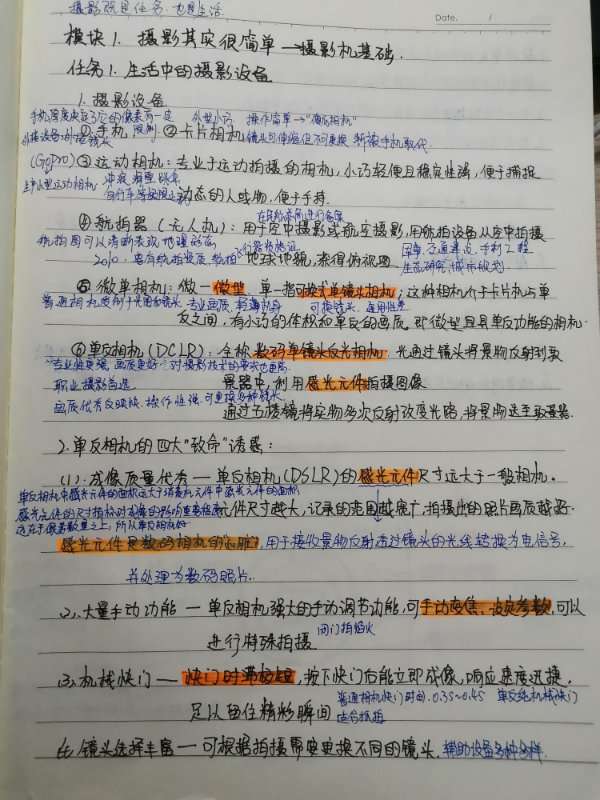 摄影既是任务 也是生活
Date. /
模块1. 摄影其实很简单→摄影机基础.
任务1. 生活中的摄影设备
1. 摄影设备
外型小巧 操作简单→"傻瓜相机"
①手机 限制 ②卡片相机 镜头可伸缩但不可更换 渐被手机取代
(GoPro) ③运动相机:专业于运动拍摄的相机,小巧轻便且稳定性强,便于捕捉
主流小型运动相机 冲浪 滑雪 跳伞
自行车等极限运动 动态的人或物,便于手持.
在民航条例进行备案
④航拍器(无人机):用于空中摄影或航空摄影,用航拍设备从空中拍摄
航拍图可以清晰表现地理形态 国事、交通建设、水利工程
地球地貌,获得俯视图 生态研究、城市规划
⑤微单相机:微一微型 单一指可换式单镜头相机,这种相机介于卡片机与单
可换镜头
反之间,有小巧的体积和单反的画质,即微型且具单反功能的相机.
⑥单反相机(DCLR):全称数码单镜头反光相机,光通过镜头将景物反射到取
专业性更强,画质更好 对摄影技术的要求也更高
职业摄影首选 景器中,利用感光元件拍摄图像
画质优秀 反映快、操作性强、可更换多种镜头
通过五棱镜将实物多次反射改变光路,将景物送至取景器.
2.单反相机的四大"致命"诱惑:
(1).成像质量优秀—单反相机(DSLR)的感光元件尺寸远大于一般相机.
单反相机中感光元件的面积远大于消费机元件中感光元件的面积
感光元件的尺寸指标对成像的影响重要程度 元件尺寸越大,记录的范围越宽广,拍摄出的照片画质越好.
远在于像素数量之上,所以单反相机好
感光元件是数码相机的心脏,用于接收景物反射透过镜头的光线转换为电信号,
并处理为数码照片.
(2).大量手动功能—单反相机强大的手动调节功能,可手动变焦、设定参数,可以
进行特殊拍摄 闭门拍焰火
(3).机械快门—快门时滞极短,按下快门后能立即成像,响应速度迅捷.
普通相机快门时间.0.3s~0.4s 单反纯机械快门
足以留住精彩瞬间 适合抓拍
(4).镜头选择丰富—可根据拍摄需要更换不同的镜头. 辅助设备多种多样.